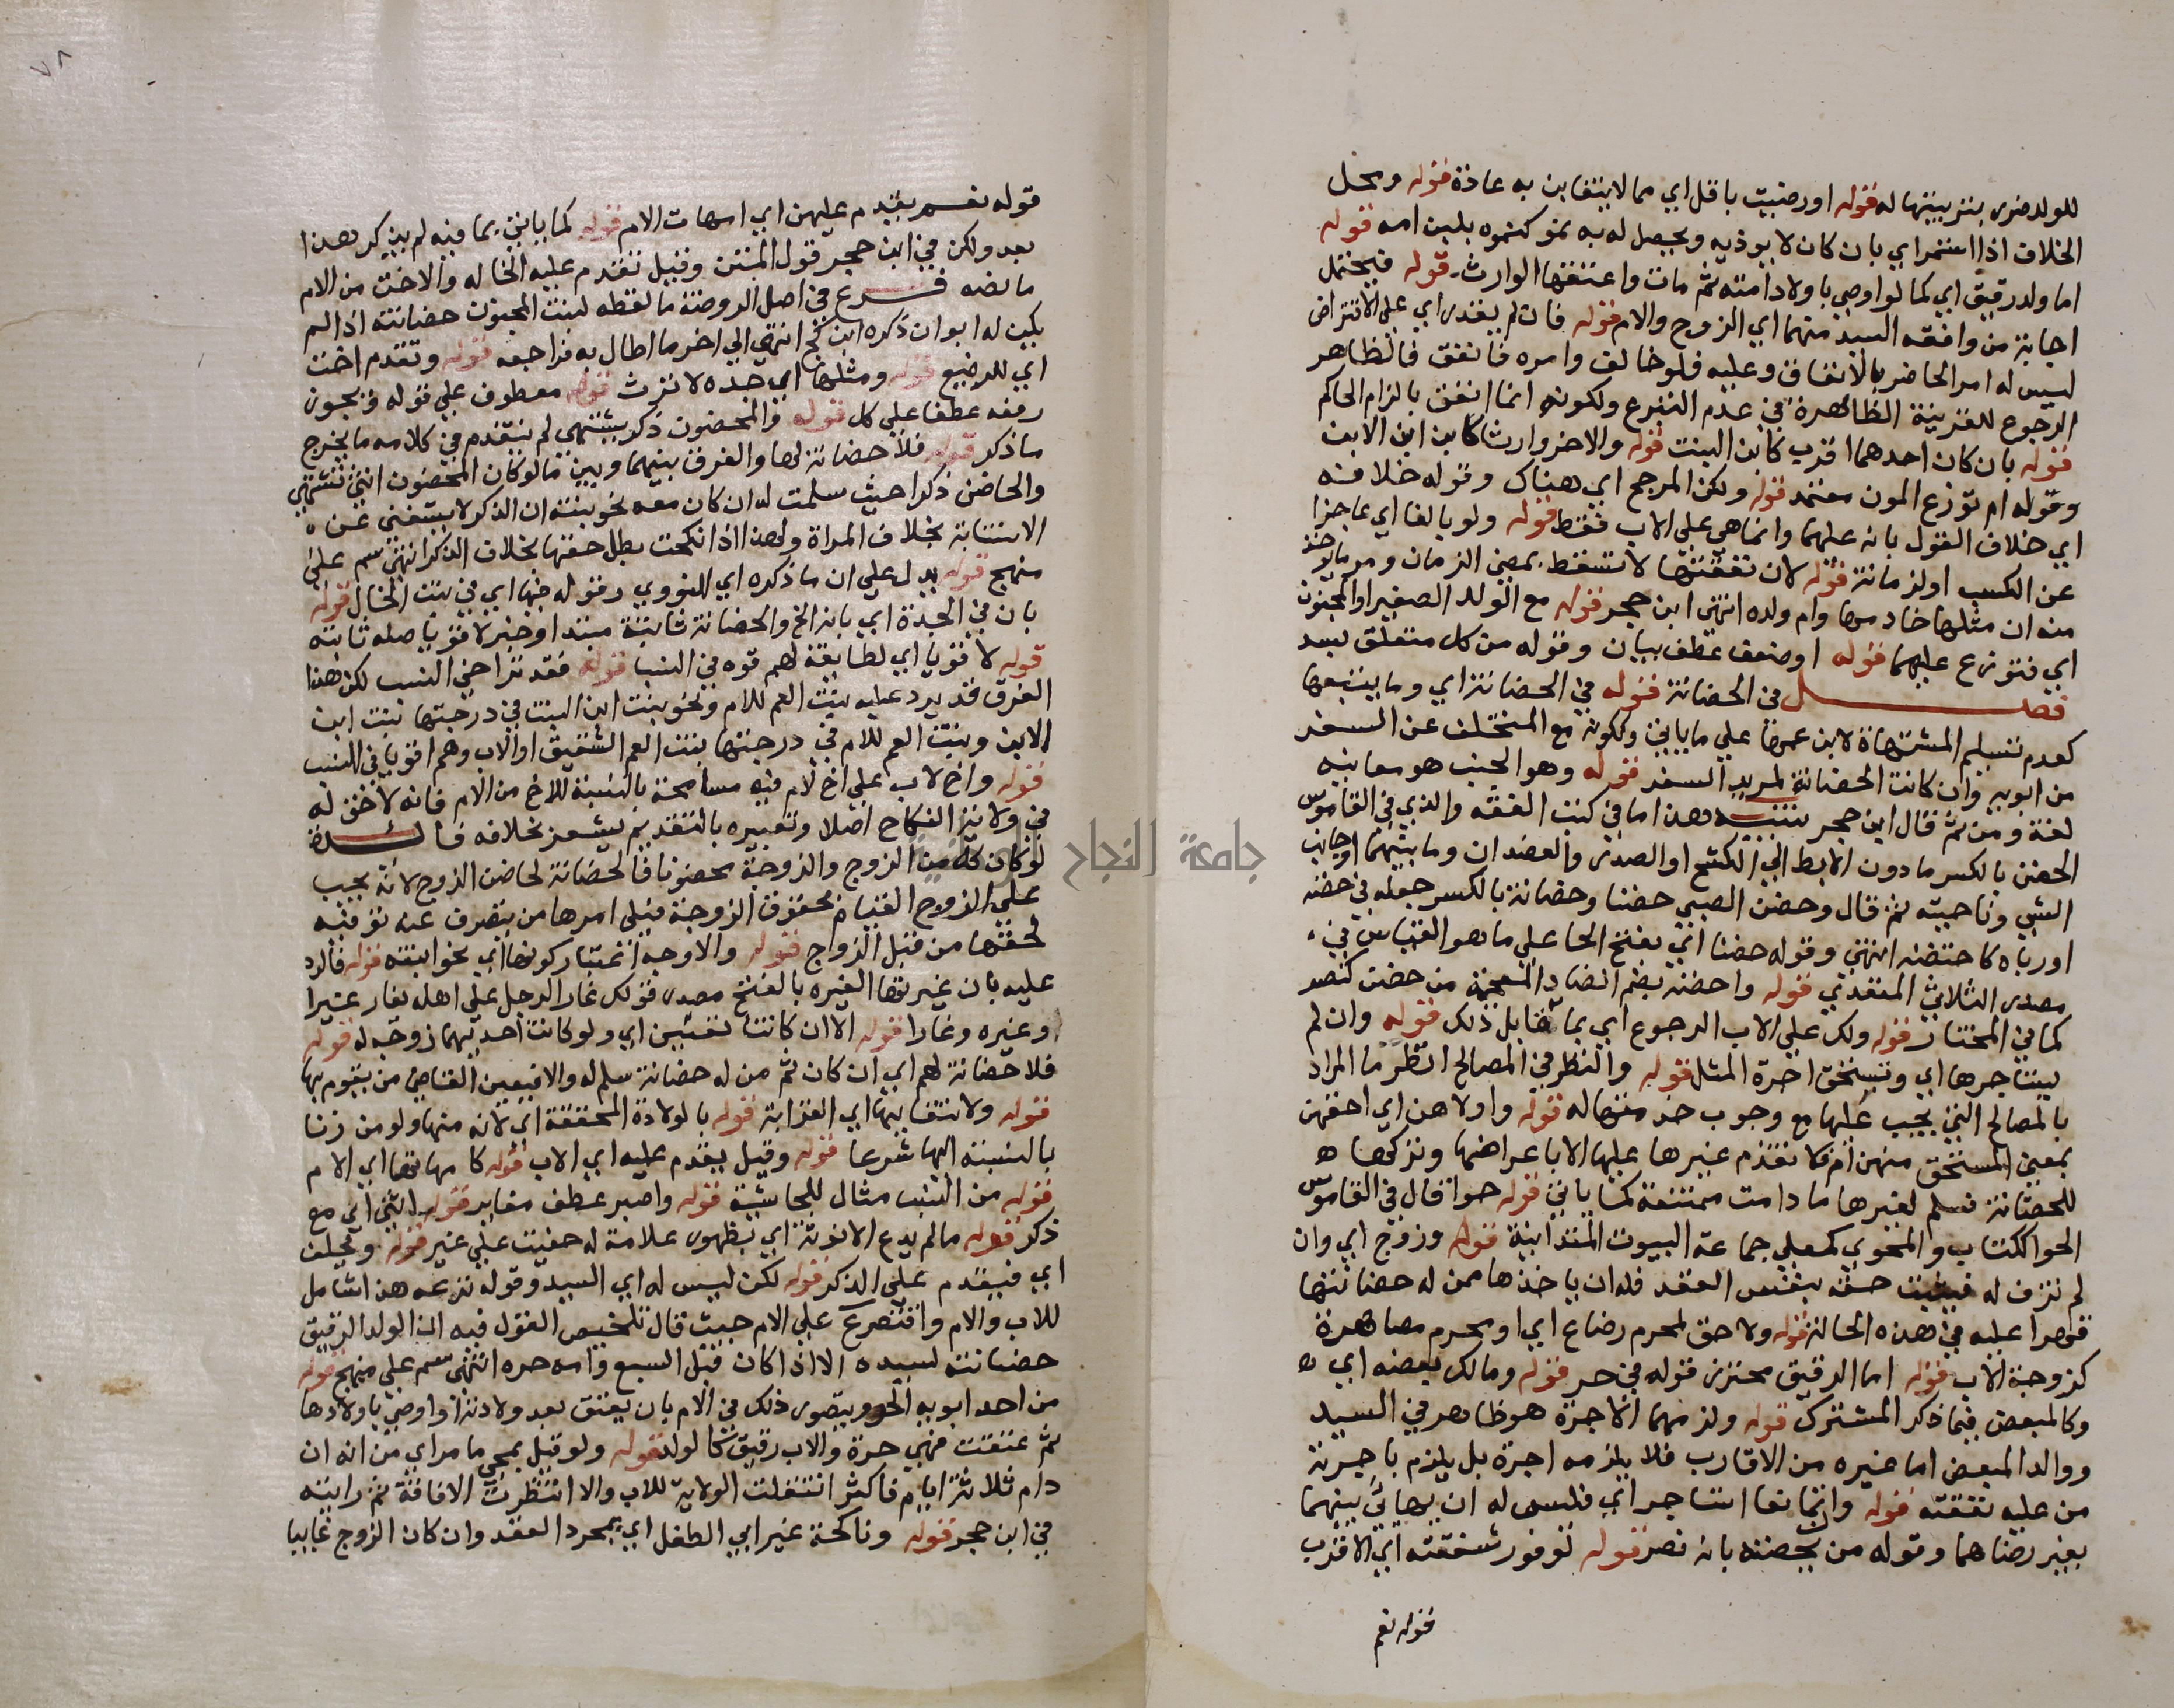 للولد ضرر بتربيتها له قوله او رضيت باقل اي مما لا يتغابن به عادة قوله ومحل
الخلاف اذا استمراي بان كان لا يوذيه ويحصل له به نمو كنموه بلبن امه قوله
اما ولد رقيق اي كما لو اوصي باولاد امته ثم مات واعتقها الوارث قوله فيحتمل
اجابة من وافقه السيد منهما اي الزوج والام قوله فان لم يقدر اي علي الاقتراض
ليس له امر الحاضر بالانفاق وعليه فلو خالف وامره فانفق فالظاهر
الرجوع للقرينة الظاهرة في عدم التبرع ولكونه انما انفق بالزام الحاكم
قوله بان كان احدهما اقرب كابن البنت قوله والاخر وارثا كابن ابن الابن
وقوله ام توزع المون معتمد قوله ولكن المرجح اي هناك وقوله خلافه
اي خلاف القول بانه عليهما وانما هي علي الاب فقط قوله ولو بالغا اي عاجزا
عن الكسب او لزمانة قوله لان نفقتها لا تسقط بمضي الزمان ومر ما يوخذ
منه ان مثلها خادمها وام ولده انتهي ابن حجر قوله مع الولد الصغير او المجنون
اي فتوزع عليهما قوله او ضعف عطف بيان وقوله من كل متعلق بسد
فصل في الحضانة قوله في الحضانة اي وما يتبعها
كعدم تسليم المشتهاة لابن عمها علي ما ياتي ولكونه مع المتخلف عن السفر
من ابويه وان كانت الحضانة لمريد السفر قوله وهو الجنب هو معانيه
لغة ومن ثم قال ابن حجر تنبيه هذا ما في كتب الفقه والذي في القاموس
الحضن بالكسر ما دون الابط الي الكشح او الصدر والعضدان وما بينهما او جانب
الشي وناحيته ثم قال وحضن الصبي حضنا وحضانة بالكسر جعله في حضنه
او رباه كاحتضنه انتهي وقوله حضنا اي بفتح الحا علي ما هو القياس في
مصدر الثلاثي المتعدي قوله واحضنه بضم الضاد المعجمة من حضن كنصر
كما في المختار قوله ولكن علي الاب الرجوع اي بما يقابل ذلك قوله وان لم
يستاجرها اي وتستحق اجرة المثل قوله والنظر في المصالح انظر ما المراد
بالمصالح التي يجب عليها مع وجوب خدمتها له قوله واولاهن اي احقهن
بمعني المستحق منهن ام فلا تقدم غيرها عليها الا باعراضها وتركها ه
للحضانة فتسلم لغيرها ما دامت ممتنعة كما ياتي قوله حوا قال في القاموس
الحوا ككتاب والمحوي كمعلي جماعة البيوت المتدانية قوله وزوج اي وان
لم تزف له فيثبت حقه بنفس العقد فله ان ياخذها ممن له حضانتها
قهرا عليه في هذه الحالة قوله ولا حق لمحرم رضاع اي او محرم مصاهرة
كزوجة الاب قوله اما الرقيق محترز قوله في حر قوله ومالك بعضه اي ه
وكالمبعض فيما ذكر المشترك قوله ولزمهما الاجرة هو ظاهر في السيد
ووالد المبعض اما غيره من الاقارب فلا يلزمه اجرة بل يلزم باجرته
من عليه نفقته قوله وان تمانعا استاجر اي فليس له ان يهايئ بينهما
بغير رضاهما وقوله من يحضنه بانه نصر قوله لوفور شفقته اي الاقرب
قوله نعم
٧٨
قوله نعم يقدم عليهن اي امهات الام قوله كما ياتي بما فيه لم يذكر هذا
بعد ولكن في ابن حجر قول المتن وقيل تقدم عليه الخالة والاخت من الام
ما نصه فرع في اصل الروضة ما لفظه لبنت المجنون حضانته اذا لم
يكن له ابوان ذكره ابن كج انتهي الي اخر ما اطال به فراجعه قوله وتقدم اخت
اي للرضيع قوله ومثلها اي جده لا ترث قوله معطوف علي قوله ويجوز
رفعه عطفا علي كل قوله والمحضون ذكر يشتهي لم يتقدم في كلامه ما يخرج
ما ذكر قوله فلا حضانة لها والفرق بينهما وبين ما لو كان المحضون انثي تشتهي
والحاضن ذكرا حيث سلمت له ان كان معه نحو بنته ان الذكر لا يستغني عن ه
الاستنابة بخلاف المراة ولهذا اذا نكحت بطل حقها بخلاف الذكر انتهي سم علي
منهج قوله يدل علي ان ما ذكره اي النووي وقوله فيها اي في بنت الخال قوله
بان في الجدة اي بانه الخ والحضانة ثابتة مبتدا وخبر لاقويا صله ثابته
قوله لاقويا اي لطابقة لهم قوه في النسب قوله فقد تراخي النسب لكن هذا
الفرق قد يرد عليه بنت العم للام ونحو بنت ابن البنت في درجتها بنت ابن
الابن وبنت العم للام في درجتها بنت العم الشقيق او الاب وهم اقويا في النسب
قوله واخ لاب علي اخ لام فيه مسامحة بالنسبة للاخ من الام فانه لا حق له
في ولاية النكاح اصلا وتعبيره بالتقديم يشعر بخلافه فائدة
لو كان كل من الزوج والزوجة محضونا فالحضانة لحاضن الزوج لانه يجب
علي الزوج القيام بحقوق الزوجة فيلي امرها من يتصرف عنه توفية
لحقها من قبل الزوج قوله والاوجه اعتبار كونها اي نحو ابنته قوله فالرد
عليه بان غيرتها الغيره بالفتح مصدر قولك غار الرجل علي اهله يغار غيرا
وغيره وغارا قوله الا ان كانتا ثقتين اي ولو كانت احديهما زوجه له قوله
فلا حضانة لهم اي ان كان ثم من له حضانة سلم له والا فيعين القاضي من يقوم بها
قوله ولانتفايها اي القرابة قوله بالولادة المحققة اي لانه منها ولو من زنا
بالنسبة اليها شرعا قوله وقيل يقدم عليه اي الاب قوله كامهاتها اي الام
قوله من النسب مثال للحاشية قوله واصبر عطف مغاير قوله انثي اي مع
ذكر قوله مالم يدع الانوثة اي بظهور علامة له خفيت علي غير قوله ويحلف
اي فيقدم علي الذكر قوله لكن ليس له اي السيد وقوله نزعه هذا شامل
للاب والام واقتصر ع علي الام حيث قال تلخيص القول فيه ان الولد الرقيق
حضانته لسيده الا اذا كان قبل السبع وامه حره انتهي سم علي منهج قوله
من احد ابويه الحر ويتصور ذلك في الام بان يعتق بعد ولادته او اوصي باولادها
ثم عتقت فهي حرة والاب رقيق كالولد قوله ولو قيل بمجي ما مر اي من انه ان
دام ثلاثة ايام فاكثر انتقلت الولاية للاب والا انتظرت الافاقة ثم رايته
في ابن حجر قوله وناكحة غير ابي الطفل اي بمجرد العقد وان كان الزوج غايبا
جامعة النجاح